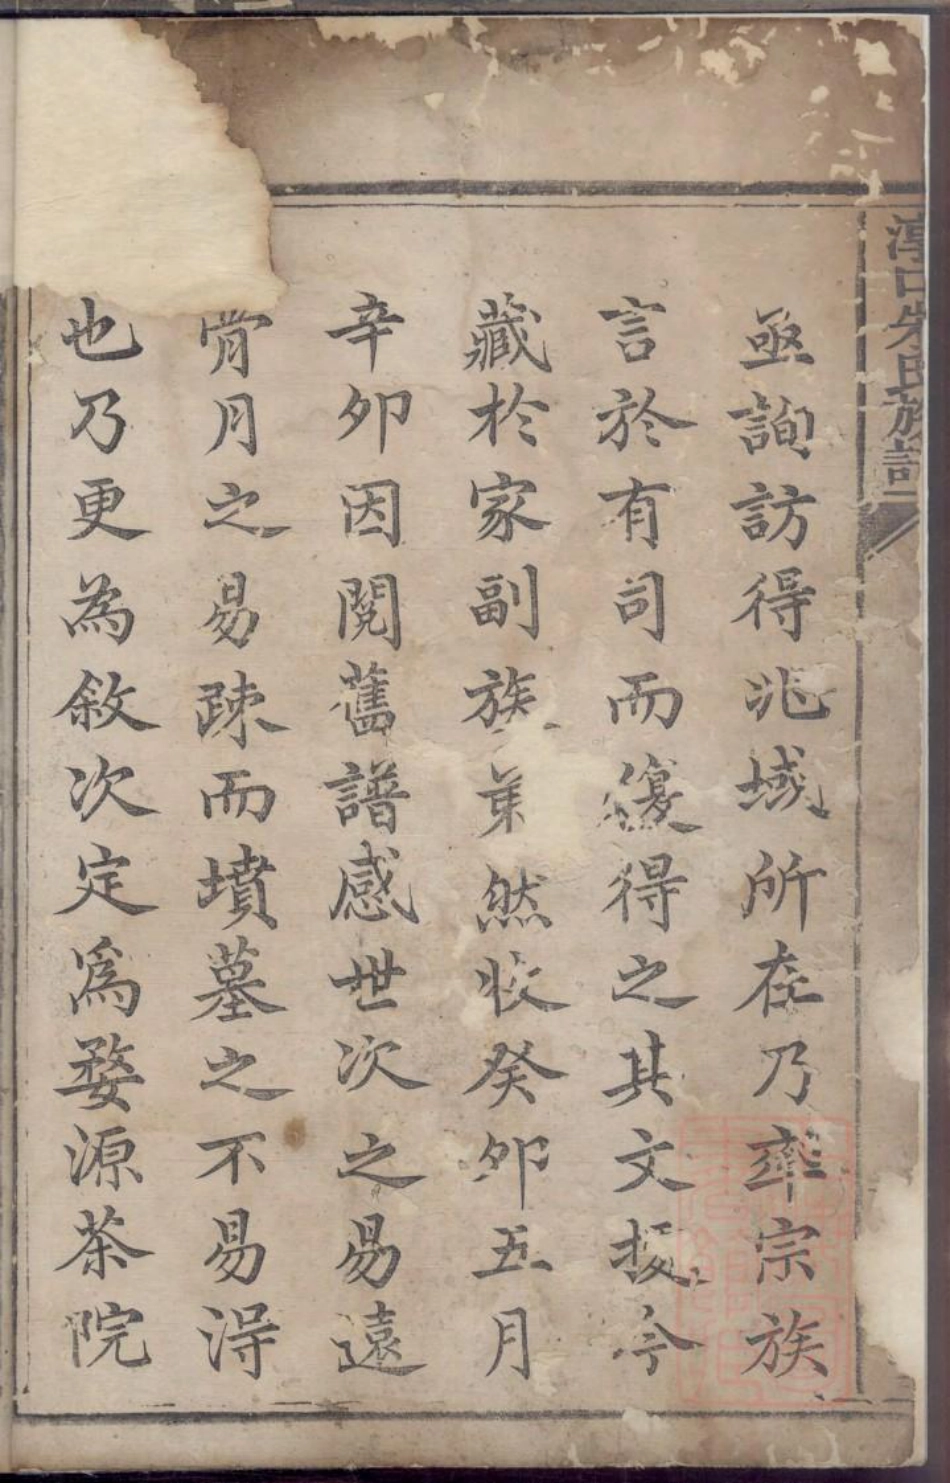 朱氏族譜
亟詢訪得兆域所在乃率宗族
言於有司而復得之其文據今
藏於家副族弟然收癸卯五月
辛卯因閱舊譜感世次之易遠
骨月之易疎而墳墓之不易淂
也乃更為敘次定爲婺源茶院